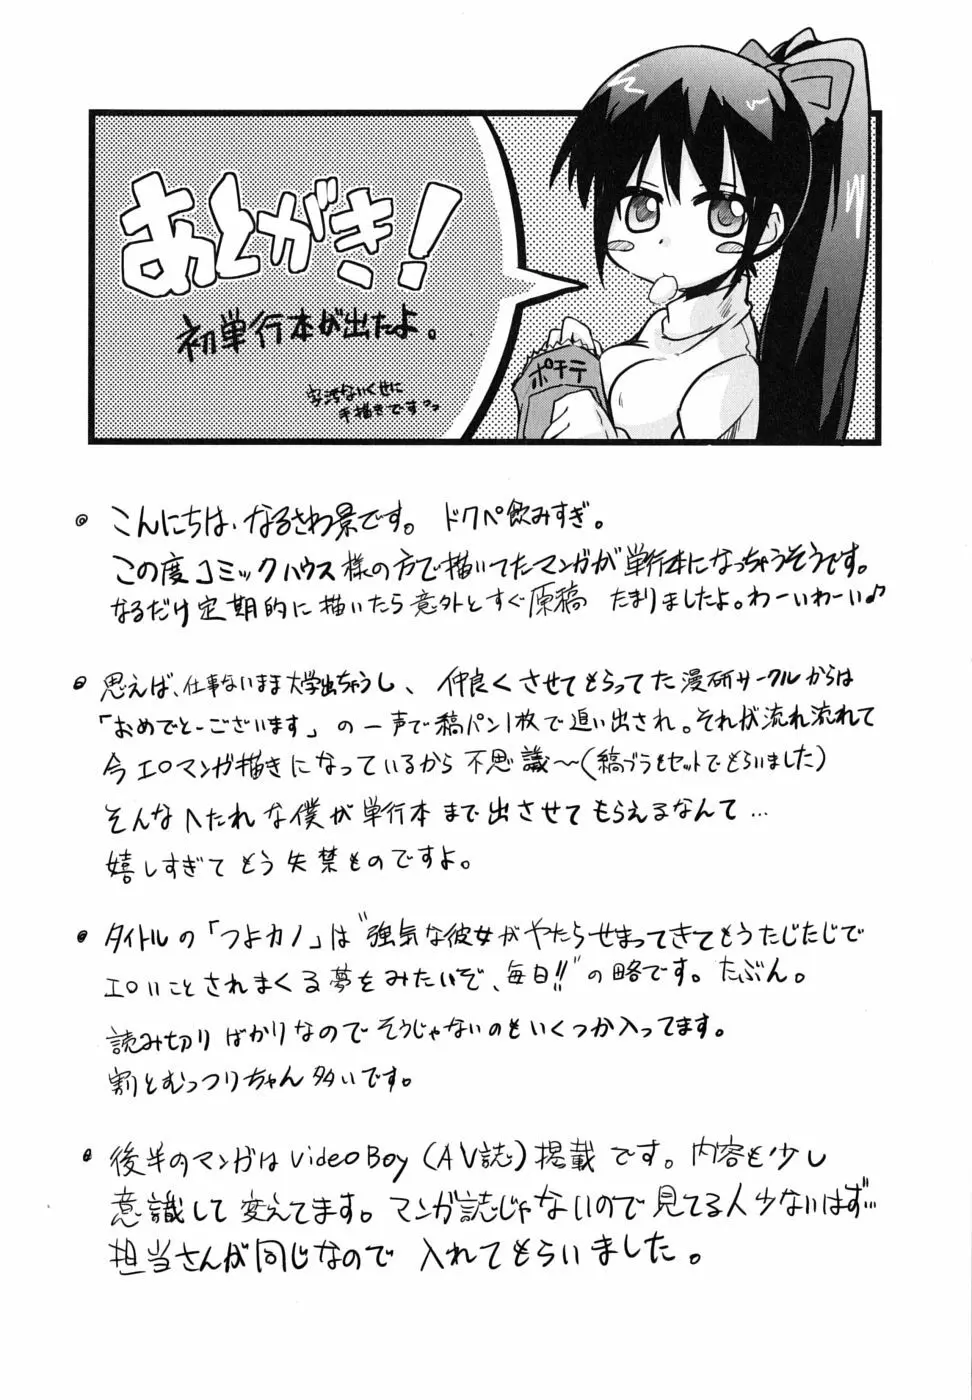 あとがき!
初単行本が出たよ。
字汚ないくせに
手描きですっ
ポテチ
こんにちは、なるさわ景です。 ドクペ飲みすぎ。
この度コミックハウス様の方で描いてたマンガが単行本になっちゃうそうです。
なるだけ定期的に描いたら意外とすぐ原稿 たまりましたよ。わーいわーい♪
思えば、仕事ないまま大学出ちゃうし、仲良くさせてもらってた漫研サークルからは
「おめでとーございます」の一声で縞パン1枚で追い出され。それ状流れ流れて
今エロマンガ描きになっているから不思議〜(縞ブラもセットでもらいました)
そんなヘたれな僕が単行本まで出させてもらえるなんて…
嬉しすぎてもう失禁ものですよ。
タイトルの「つよカノ」は"強気な彼女がやたらせまってきてもうたじたじで
エロいことされまくる夢をみたいぞ、毎日!!"の略です。たぶん。
読み切りばかりなのでそうじゃないのもいくつか入ってます。
割とむっつりちゃん多いです。
後半のマンガはVideoBoy(AV誌)掲載です。内容も少し
意識して変えてます。マンガ誌じゃないので見てる人少ないはず…
担当さんが同じなので入れてもらいました。